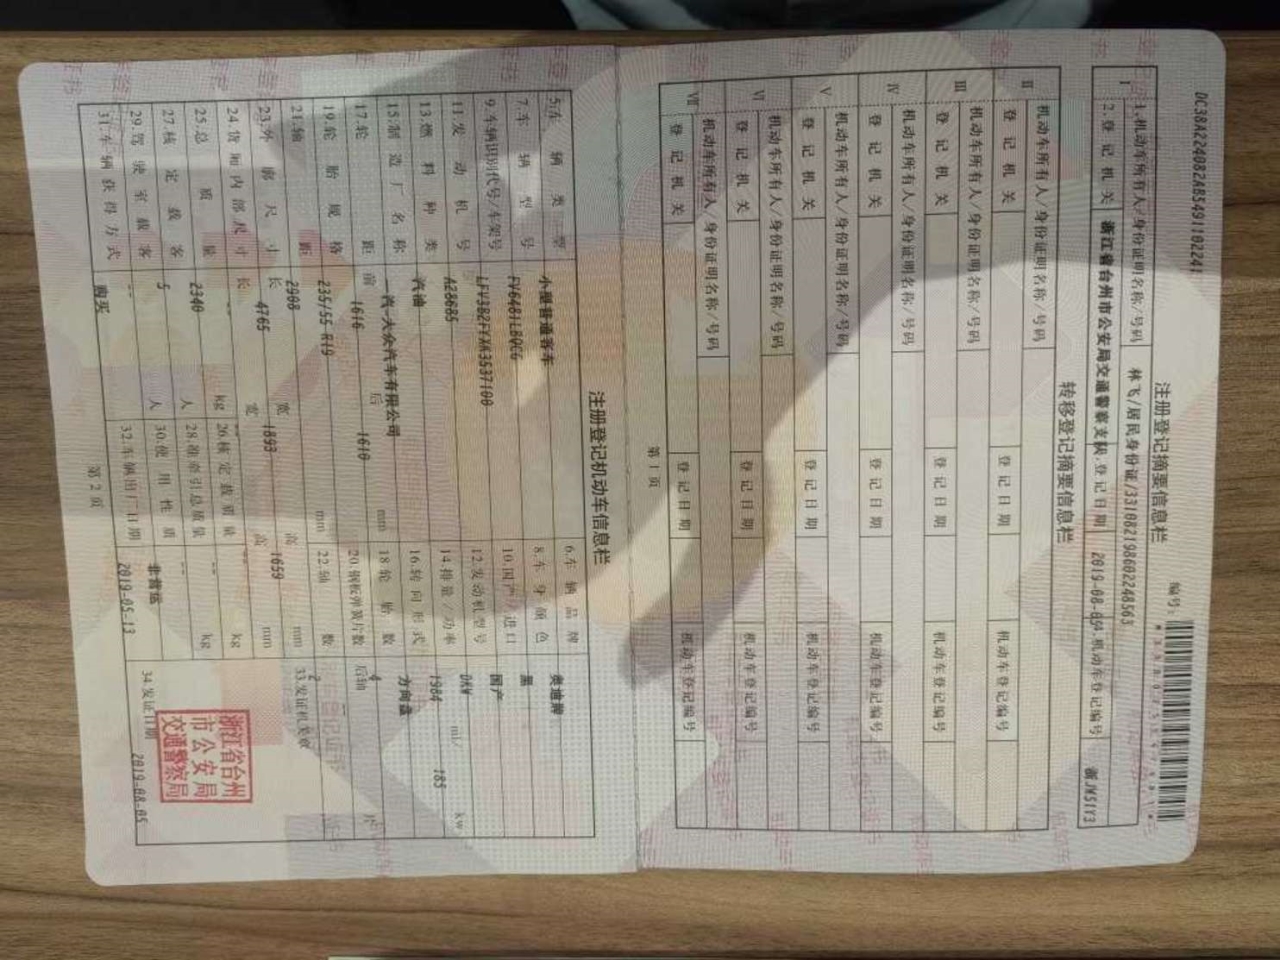 DC38A224082AB5491102241
注册登记摘要信息栏
编号:
I
1.机动车所有人/身份证明名称/号码 林飞/居民身份证/331082198602248563
2.登记机关 浙江省台州市公安局交通警察支队 登记日期 2019-08-05 机动车登记编号 浙JW51Y3
转移登记摘要信息栏
II 机动车所有人/身份证明名称/号码
登记机关 登记日期 机动车登记编号
III 机动车所有人/身份证明名称/号码
登记机关 登记日期 机动车登记编号
IV 机动车所有人/身份证明名称/号码
登记机关 登记日期 机动车登记编号
V 机动车所有人/身份证明名称/号码
登记机关 登记日期 机动车登记编号
VI 机动车所有人/身份证明名称/号码
登记机关 登记日期 机动车登记编号
VII 机动车所有人/身份证明名称/号码
登记机关 登记日期 机动车登记编号
第1页
注册登记机动车信息栏
5.车辆类型 小型普通客车 6.车辆品牌 奥迪牌
7.车辆型号 FV6481LBQCG 8.车身颜色 黑
9.车辆识别代号/车架号 LFV3B2FYXK3537100 10.国产/进口 国产
11.发动机号 A28685 12.发动机型号 DKW
13.燃料种类 汽油 14.排量/功率 1984 ml/ 185 kw
15.制造厂名称 一汽-大众汽车有限公司 16.转向形式 方向盘
17.轮距 前 1616 后 1610 mm 18.轮胎数 4
19.轮胎规格 235/55 R19 20.钢板弹簧片数 后轴 -- 片
21.轴距 2908 mm 22.轴数 2
23.外廓尺寸 长 4765 宽 1893 高 1659 mm 33.发证机关章
24.货厢内部尺寸 长 -- 宽 -- 高 -- mm
25.总质量 2340 kg 26.核定载质量 -- kg
27.核定载客 5 人 28.准牵引总质量 -- kg
29.驾驶室载客 -- 人 30.使用性质 非营运
31.车辆获得方式 购买 32.车辆出厂日期 2019-05-13 34.发证日期 2019-08-05
浙江省台州
市公安局
交通警察局
第2页